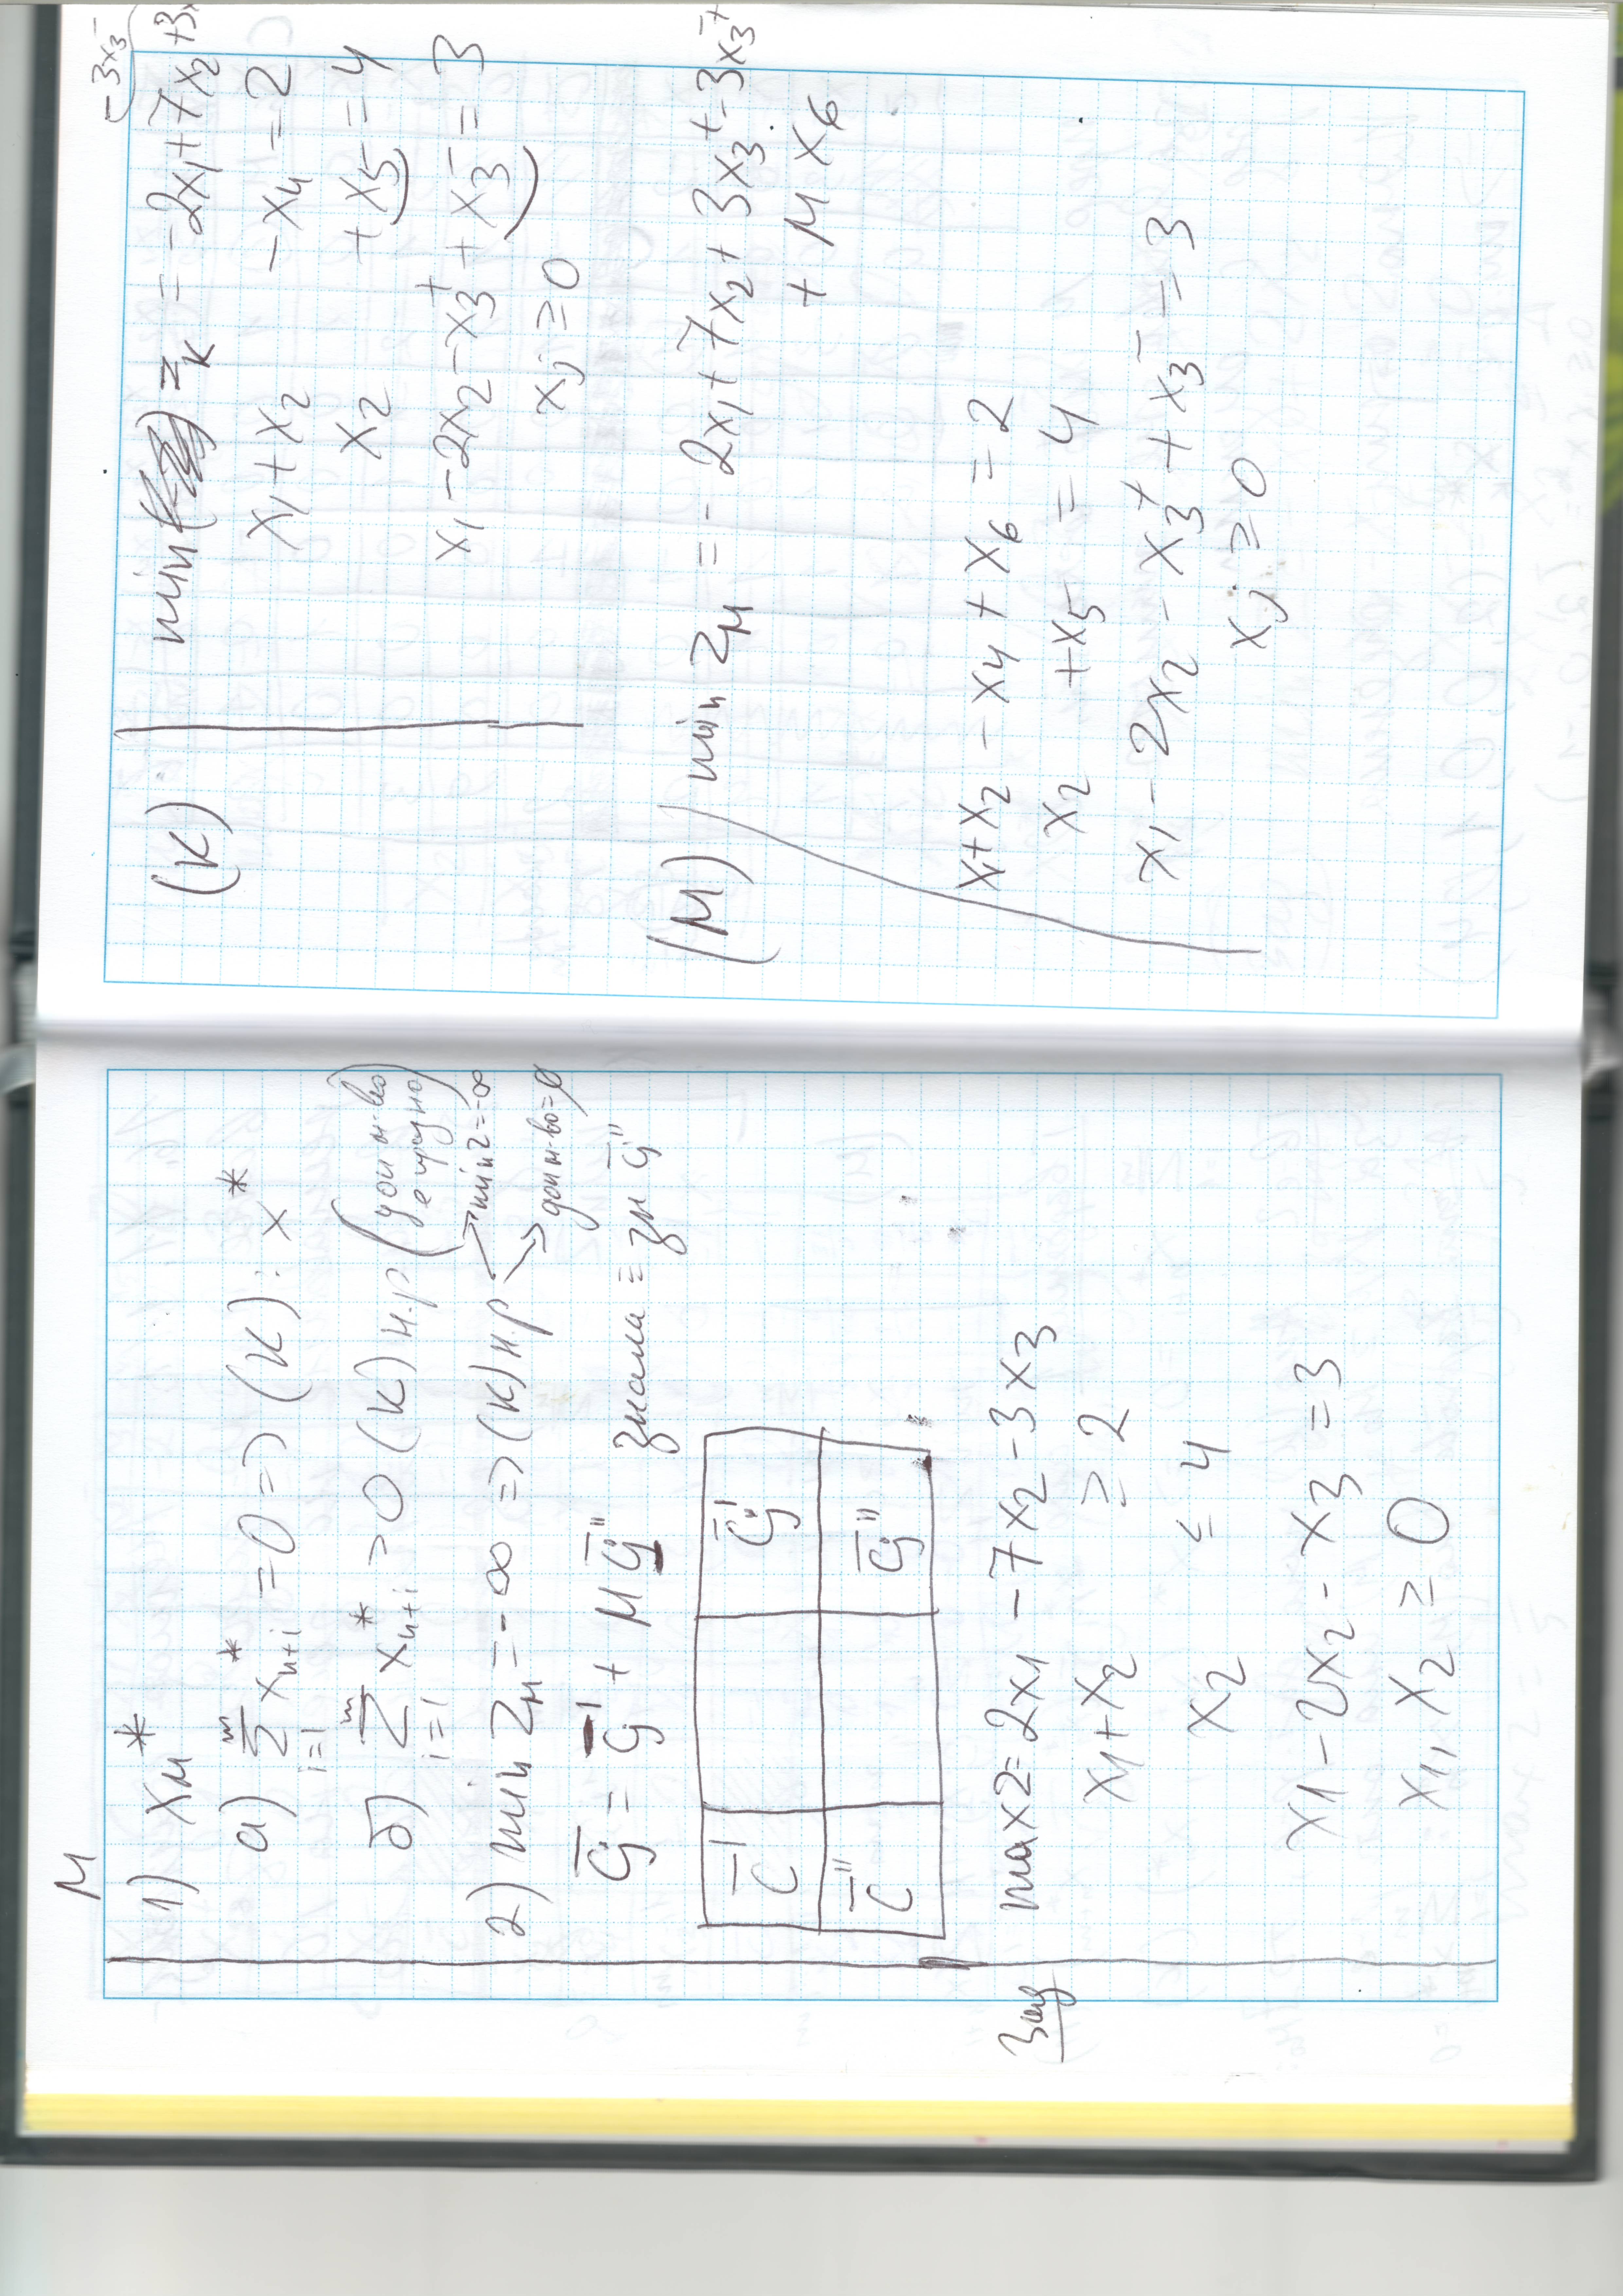 M
1) Xм*
а) Σ xₙ₊ᵢ* = 0 => (К): x*
i=1 m
б) Σ xₙ₊ᵢ* > 0 (К) н.р (доп м-во е празно)
i=1 m
2) min Zм = -∞ => (К) н.р → min z = -∞
→ доп м-во = ∅
c̄ⱼ = c̄ⱼ' + M c̄ⱼ'' знака = зн c̄ⱼ''
c̄' c̄ⱼ'
c̄'' c̄ⱼ''
Зад max z = 2x1 - 7x2 - 3x3
x1 + x2 ≥ 2
x2 ≤ 4
x1 - 2x2 - x3 = 3
x1, x2 ≥ 0
(К) min zк = -2x1 + 7x2 + 3x
- 3x3⁻
x1 + x2 - x4 = 2
x2 + x5 = 4
x1 - 2x2 - x3⁺ + x3⁻ = 3
xj ≥ 0
(М) min Zм = -2x1 + 7x2 + 3x3⁺ - 3x3⁻ +
+ M x6
x1 + x2 - x4 + x6 = 2
x2 + x5 = 4
x1 - 2x2 - x3⁺ + x3⁻ = 3
xj ≥ 0